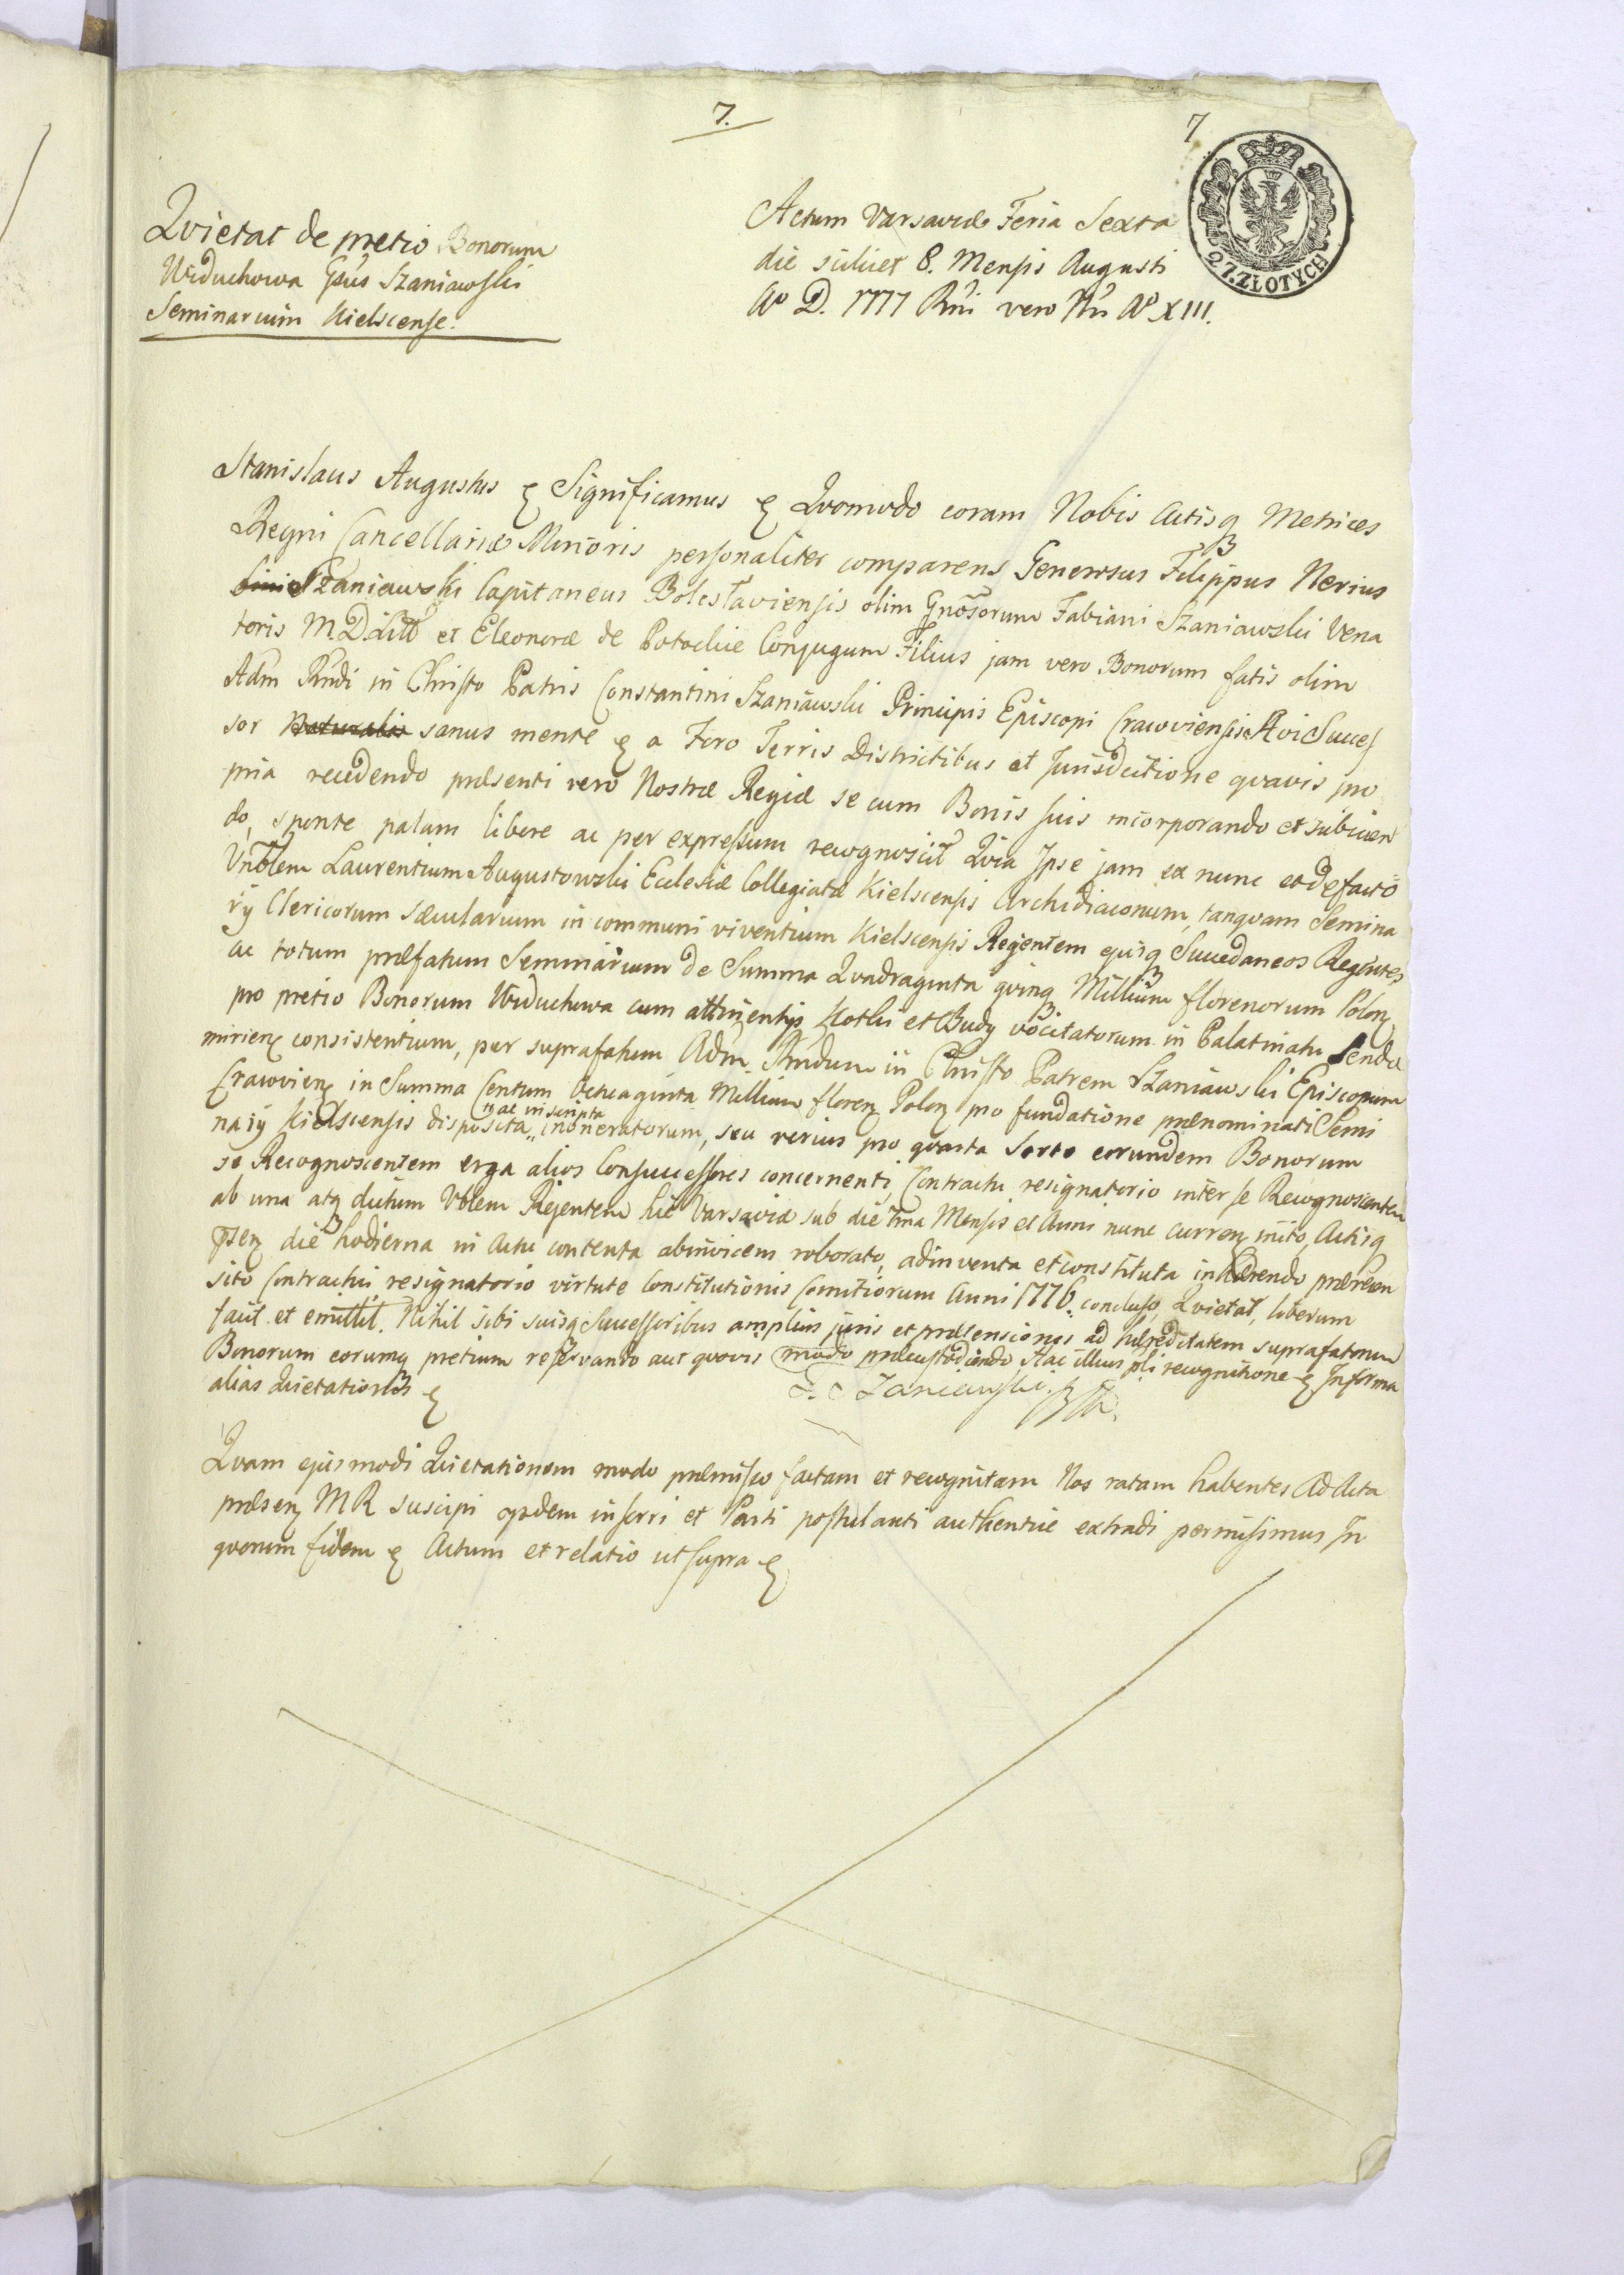 7.
7
2 ZŁOTYCH
Qvietat de pretio Bonorum
Widuchowa Gsus Szaniawski
Seminarium Kielscense.
Actum Varsaviæ Feria Sexta
die scilicet 8. Mensis Augusti
Aº D. 1777 Rni vero Nri Aº XIII.
Stanislaus Augustus Significamus Qvomodo coram Nobis Actisq Metrices
Regni Cancellariæ Minoris personaliter comparens Generosus Filippus Nerius
Szaniawski Capitaneus Bolesłaviensis olim Gnosorum Fabiani Szaniawski Vena
toris M D Litt et Eleonoræ de Potockie Conjugum Filius jam vero Bonorum fatis olim
Adm Rndi in Christo Patris Constantini Szaniawski Principis Episcopi Cracoviensis Avi Succes
sor naturalis sanus mente a Foro Terris Districtibus et Jurisdictione qvavis pro
pria recedendo præsenti vero Nostræ Regiæ se cum Bonis suis incorporando et subiicien
do, sponte palam libere ac per expressum recognoscit Qvia Ipse jam ex nunc et de facto
Vnblem Laurentium Augustowski Ecclesiæ Collegiatæ Kielscensis Archidiaconum, tanqvam Semina
rÿ Clericorum sæcularium in communi viventium Kielscensis Regentem ejusq Succedaneos Regentes,
ac totum præfatum Seminarium de Summa Qvadraginta qvinq Millium florenorum Polon
pro pretio Bonorum Widuchowa cum attinentÿs Kotki et Budy vocitatorum in Palatinatu Sendo
mirien consistentium, per suprafatum Adm Rndum in Christo Patrem Szaniawski Episcopum
Cracovien in Summa Centum Octuaginta Millium floren Polon pro fundatione prænominati Semi
narÿ Kielscensis disposita, ac inscripta inoneratorum, seu verius pro qvarta Sorte eorundem Bonorum
se Recognoscentem erga alios Consuccessores concernenti, Contractu resignatorio inter se Recognoscentem
ab una atq dictum Vblem Regentem hic Varsaviæ sub die 7ma Mensis et Anni nunc curren inito, Actisq
psen die hodierna in Actu contenta abinvicem roborato, adinventa et constituta inhærendo præreen
sito Contractui resignatorio virtute Constitutionis Comitiorum Anni 1776. concluso, Qvietat, liberum
facit et emittit. Nihil sibi suisq Successoribus amplius juris et prætensionis ad hæreditatem suprafatorum
Bonorum eorumq pretium reservando aut qvovis modo præcustodiendo Hac illius pli recognitione In forma
alias Qvietationis
F. Szaniawski
Qvam ejusmodi Qvietationem modo præmisso factam et recognitam Nos ratam habentes Ad Acta
præsen MR suscipi eisdem inserri et Parti postulanti authentice extradi permisimus In
qvorum fidem Actum et relatio ut supra